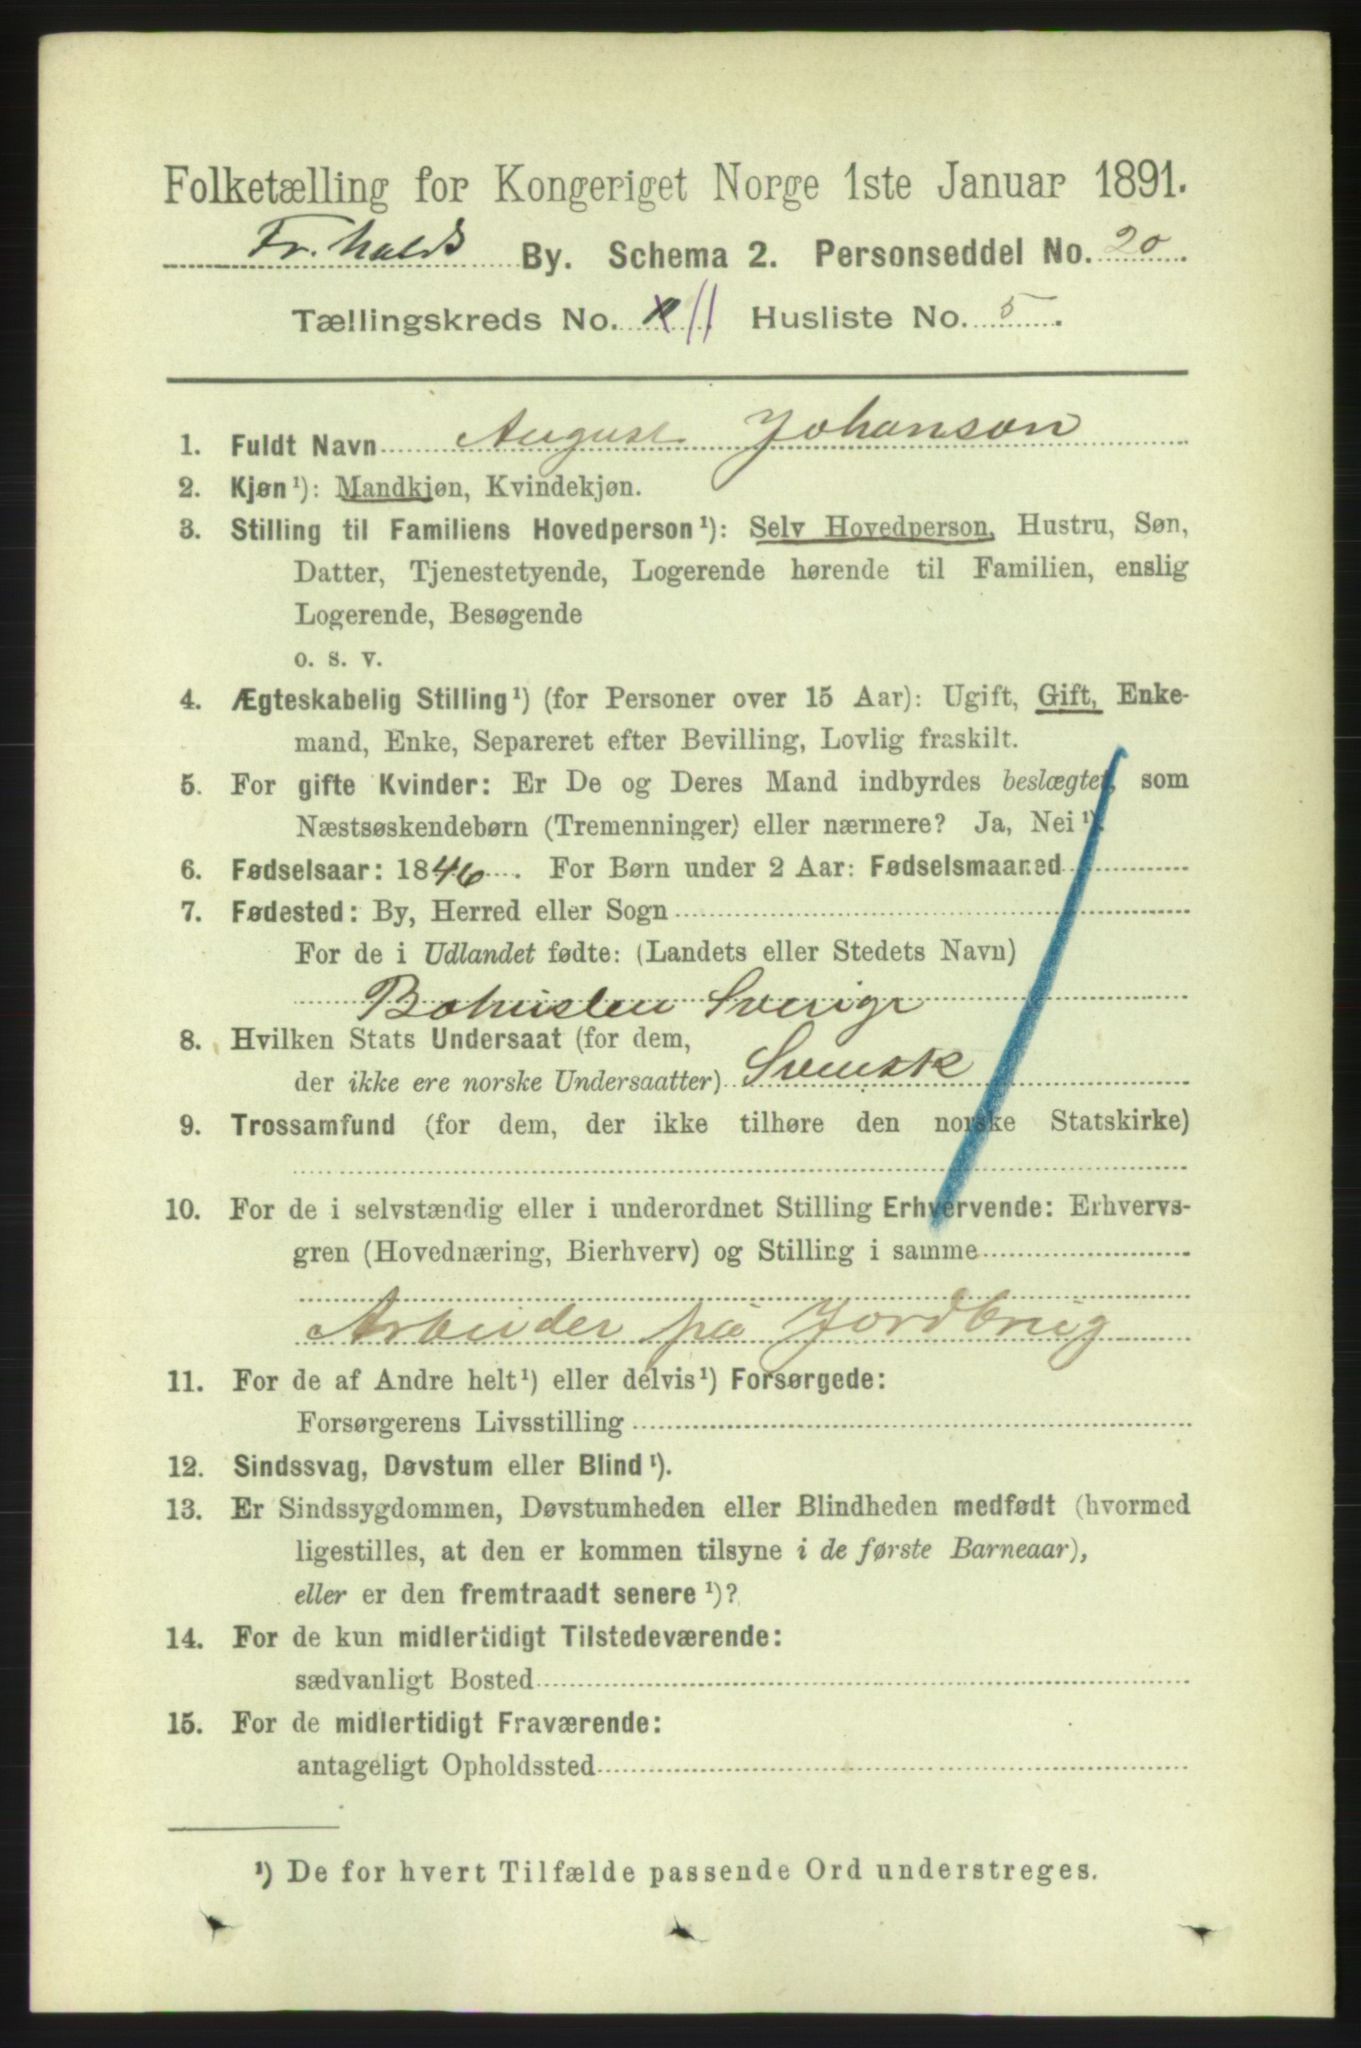 Folketælling for Kongeriget Norge 1ste Januar 1891.
Fr.halds By. Schema 2. Personseddel No. 20.
Tællingskreds No. 11 Husliste No. 5.
1. Fuldt Navn August Johanson
2. Kjøn¹): Mandkjøn, Kvindekjøn.
3. Stilling til Familiens Hovedperson¹): Selv Hovedperson, Hustru, Søn,
Datter, Tjenestetyende, Logerende hørende til Familien, enslig
Logerende, Besøgende
o. s. v.
4. Ægteskabelig Stilling¹) (for Personer over 15 Aar): Ugift, Gift, Enke-
mand, Enke, Separeret efter Bevilling, Lovlig fraskilt.
5. For gifte Kvinder: Er De og Deres Mand indbyrdes beslægtet, som
Næstsøskendebørn (Tremenninger) eller nærmere? Ja, Nei¹).
6. Fødselsaar: 1846. For Børn under 2 Aar: Fødselsmaaned
7. Fødested: By, Herred eller Sogn
For de i Udlandet fødte: (Landets eller Stedets Navn)
Bohuslen Sverige
8. Hvilken Stats Undersaat (for dem,
der ikke ere norske Undersaatter) Svensk
9. Trossamfund (for dem, der ikke tilhøre den norske Statskirke)
10. For de i selvstændig eller i underordnet Stilling Erhvervende: Erhvervs-
gren (Hovednæring, Bierhverv) og Stilling i samme
Arbeider på Jordbrug
11. For de af Andre helt¹) eller delvis¹) Forsørgede:
Forsørgerens Livsstilling
12. Sindssvag, Døvstum eller Blind¹).
13. Er Sindssygdommen, Døvstumheden eller Blindheden medfødt (hvormed
ligestilles, at den er kommen tilsyne i de første Barneaar),
eller er den fremtraadt senere¹)?
14. For de kun midlertidigt Tilstedeværende:
sædvanligt Bosted
15. For de midlertidigt Fraværende:
antageligt Opholdssted
¹) De for hvert Tilfælde passende Ord understreges.